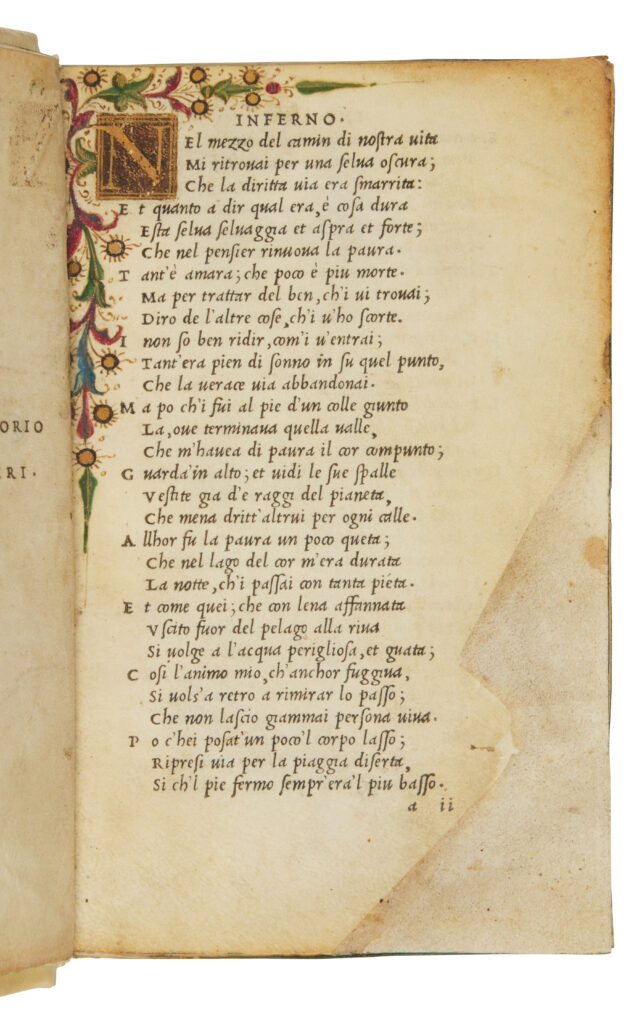 ORIO
RI.
INFERNO.
NEl mezzo del camin di nostra uita
Mi ritrouai per una selua oscura;
Che la diritta uia era smarrita:
E t quanto a dir qual era, è cosa dura
Esta selua seluaggia et aspra et forte;
Che nel pensier rinuoua la paura.
T ant'è amara; che poco è piu morte.
Ma per trattar del ben, ch'i ui trouai;
Diro de l'altre cose, ch'i u'ho scorte.
I non so ben ridir, com'i u'entrai;
Tant'era pien di sonno in su quel punto,
Che la uerace uia abbandonai.
M a po ch'i fui al pie d'un colle giunto
La, oue terminaua quella ualle,
Che m'hauea di paura il cor compunto;
G uarda'in alto; et uidi le sue spalle
Vestite gia d'e raggi del pianeta,
Che mena dritt'altrui per ogni calle.
A llhor fu la paura un poco queta;
Che nel lago del cor m'era durata
La notte, ch'i passai con tanta pieta.
E t come quei; che con lena affannata
Vscito fuor del pelago alla riua
Si uolge a l'acqua perigliosa, et guata;
C osi l'animo mio, ch'anchor fuggiua,
Si uols'a retro a rimirar lo passo;
Che non lascio giammai persona uiua.
P o c'hei posat'un poco'l corpo lasso;
Ripresi uia per la piaggia diserta,
Si ch'l pie fermo sempr'era'l piu basso.
a ii